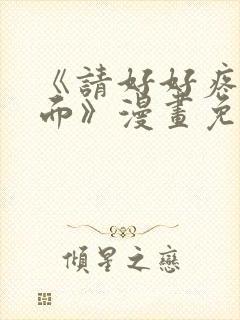 《請好好疼
而》漫畫免
傾星之戀